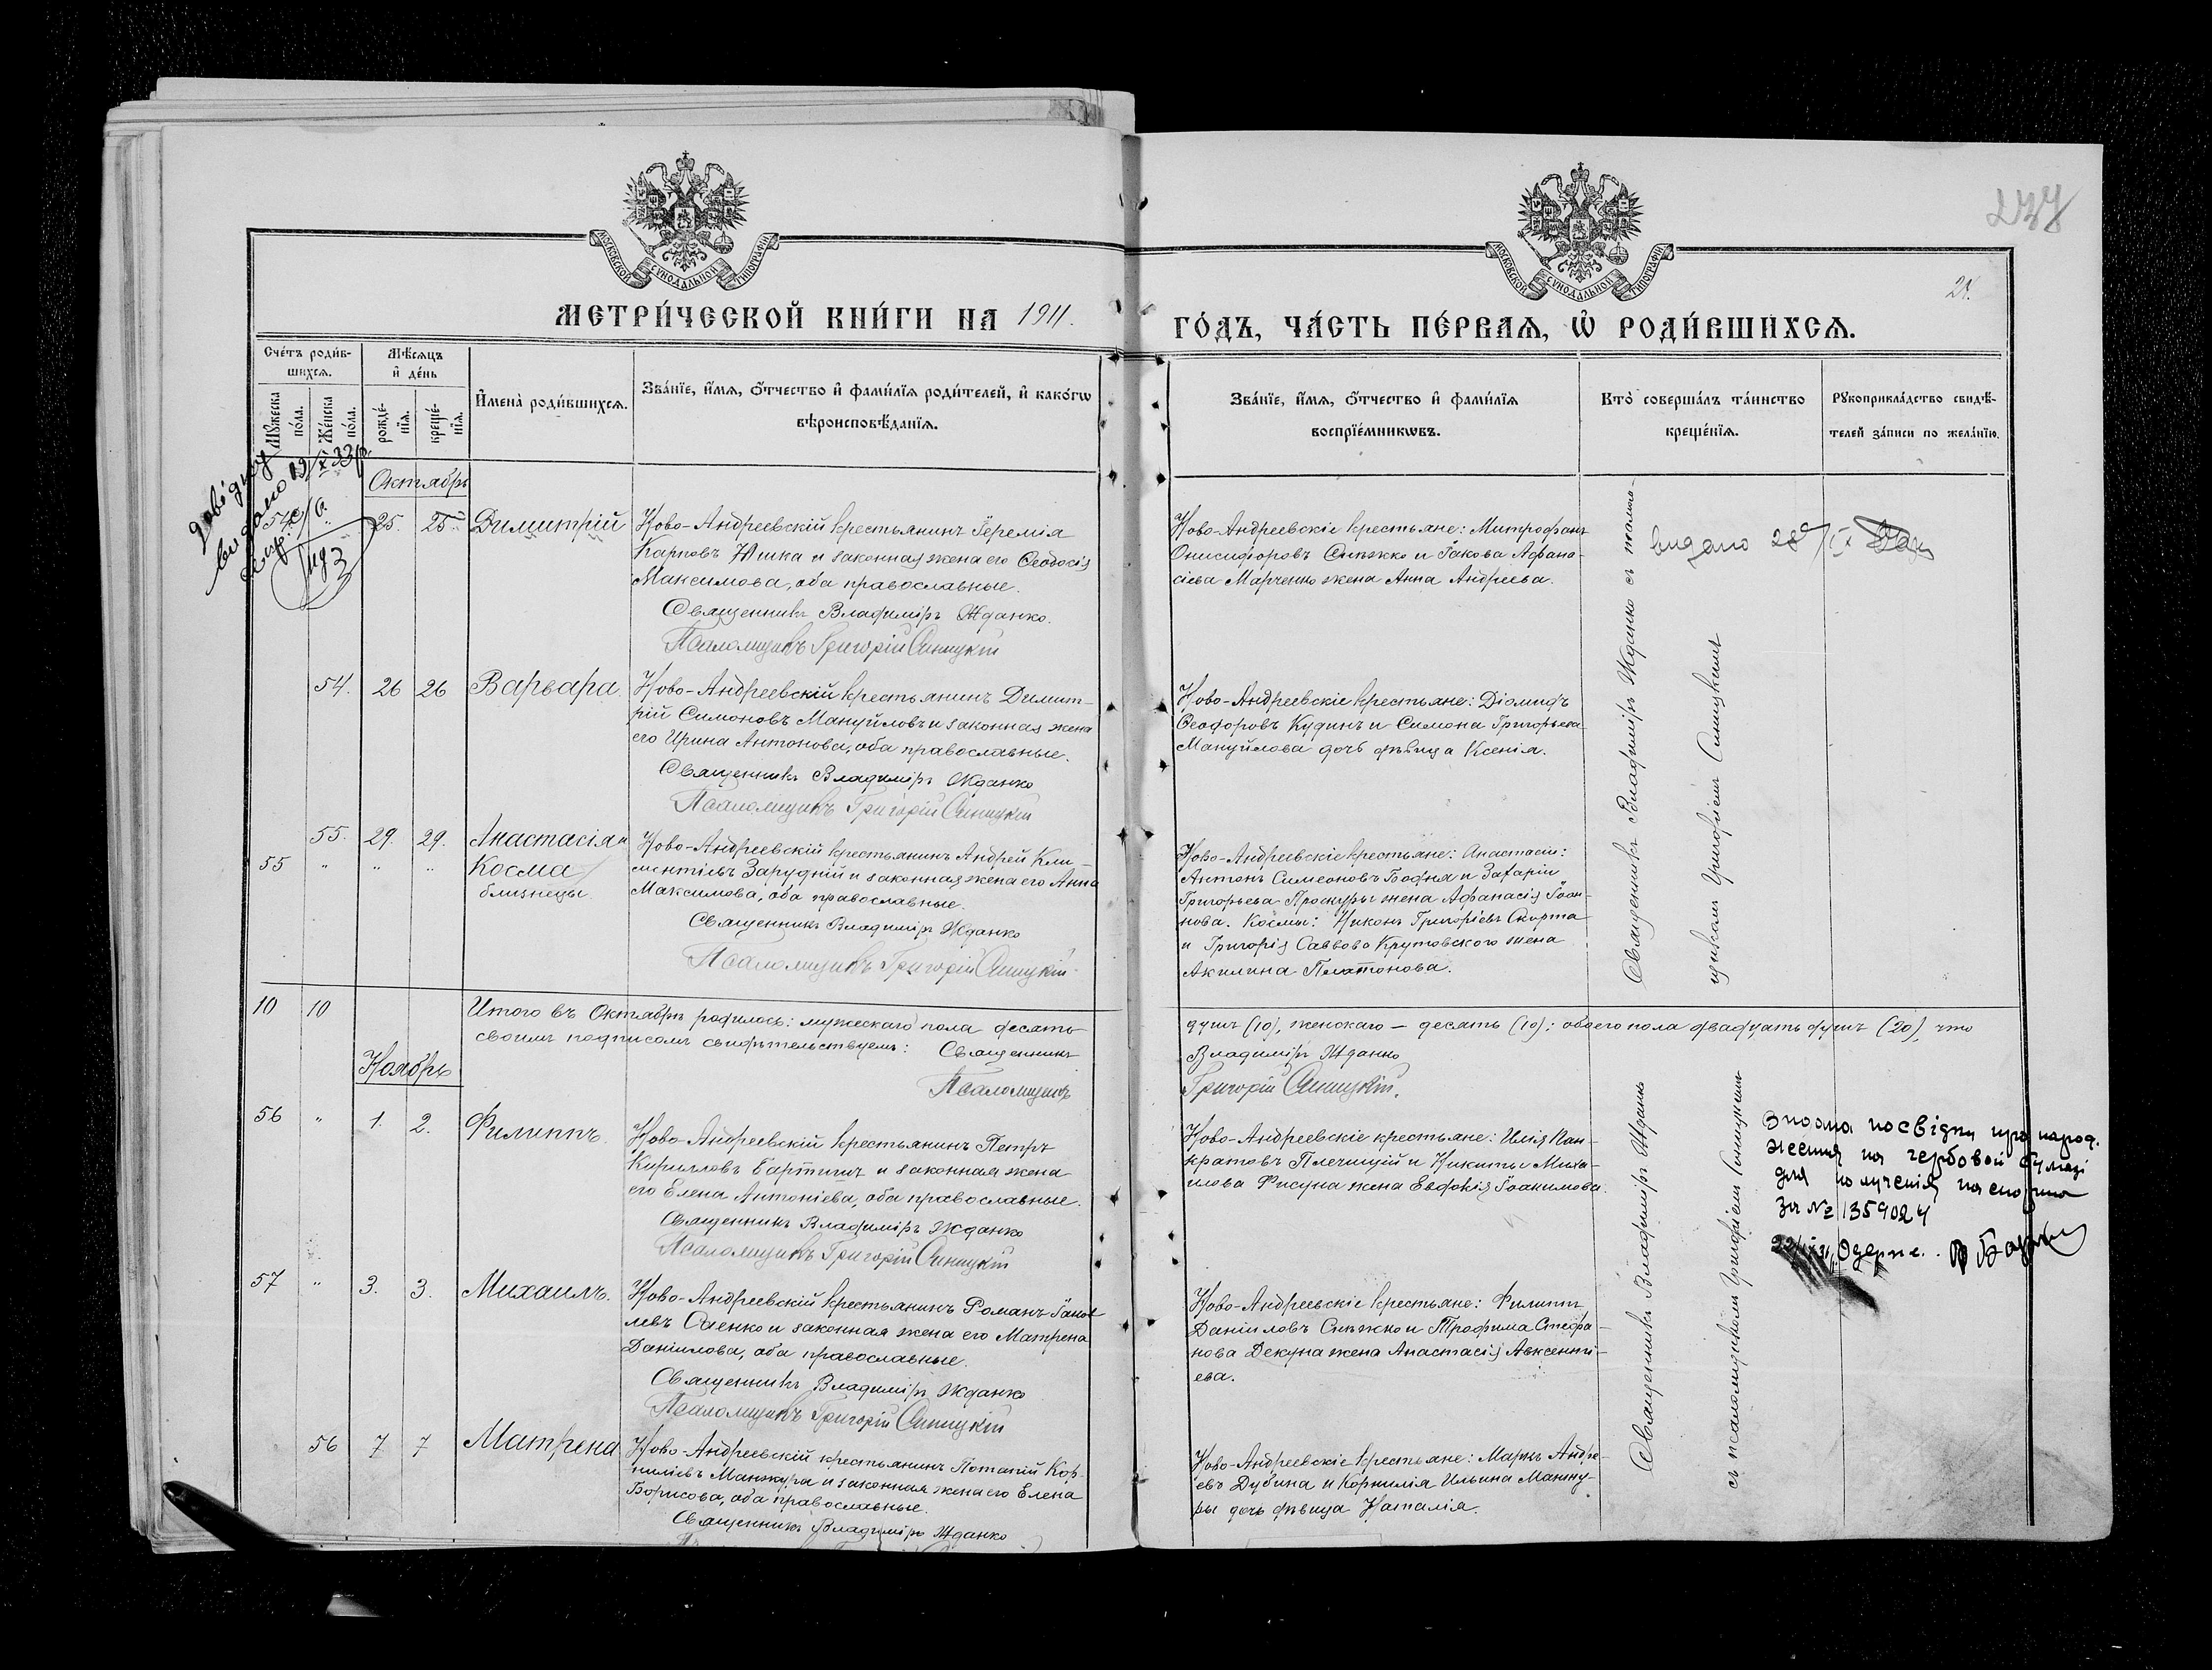 277
24.
МОСКОВСКОЙ СУНОДАЛЬНОЙ ТИПОГРАФІИ
МОСКОВСКОЙ СУНОДАЛЬНОЙ ТИПОГРАФІИ
МЕТРИ́ЧЕСКОЙ КНИ́ГИ НА 1911.
ГО́ДЪ, ЧА́СТЬ ПЕ́РВАЯ, Ѽ РОДИ́ВШИХСЯ.
Сче́тъ роди́в-
шихся.
Мѣ́сяцъ
и҆ де́нь
Мꙋ́жеска по́ла.
Же́нска по́ла.
рожде́-
нїя.
креще́-
нїя.
И҆мена̀ роди́вшихся.
Зва́нїе, и҆́мя, ѻ҆́тчество и҆ фами́лїя роди́телей, и҆ како́гѡ
вѣроисповѣ́данїя.
Зва́нїе, и҆́мя, ѻ҆́тчество и҆ фами́лїя
воспрїе́мникѡвъ.
Кто̀ соверша́лъ та́инство
креще́нїя.
Рꙋкоприкла́дство свидѣ́-
телей за́писи по жела́нїю.
Октябрь
54. " 25. 25. Димитрій
Ново-Андреевскій крестьянинъ Іеремія
Карповъ Юшка и законная жена его Ѳеодосія
Максимова, оба православные.
Священникъ Владиміръ Жданко.
Псаломщикъ Григорій Синицкій
Ново-Андреевскіе крестьяне: Митрофанъ
Онисифоровъ Снѣжко и Іакова Афана-
сіева Марченко жена Анна Андреева.
видано 28
54. 26 26 Варвара.
Ново-Андреевскій крестьянинъ Димит-
рій Симоновъ Мануйловъ и законная жена
его Ирина Антонова, оба православные.
Священникъ Владиміръ Жданко
Псаломщикъ Григорій Синицкій
Ново-Андреевскіе крестьяне: Діомидъ
Ѳеодоровъ Кудинъ и Симона Григорьева
Мануйлова дочь дѣвица Ксенія.
55. 29. 29. Анастасія и
55 " " " Косма
близнецы.
Ново-Андреевскій крестьянинъ Андрей Кли-
ментіевъ Зарудній и законная жена его Анна
Максимова, оба православные.
Священникъ Владиміръ Жданко
Псаломщикъ Григорій Синицкій
Ново-Андреевскіе крестьяне: Анастасіи:
Антонъ Симеоновъ Бодня и Захаріи
Григорьева Проскуры жена Афанасія Іоан-
нова. Космы: Никонъ Григоріевъ Скорта
и Григорія Саввова Крутовского жена
Акилина Платонова.
Священникъ Владиміръ Жданко съ псалом-
щикомъ Григоріемъ Синицкимъ
10 10 Итого въ Октябрѣ родилось: мужескаго пола десять
душъ (10), женскаго — десять (10); обоего пола двадцать душъ (20), что
своимъ подписомъ свидѣтельствуемъ: Священникъ
Владиміръ Жданко
Псаломщикъ
Григорій Синицкій.
Ноябрь
56 " 1. 2. Филиппъ.
Ново-Андреевскій крестьянинъ Петръ
Кирилловъ и законная жена
его Елена Антоніева, оба православные.
Священникъ Владиміръ Жданко
Псаломщикъ Григорій Синицкій
Ново-Андреевскіе крестьяне: Илія Пан-
кратовъ Плечицій и Никиты Миха-
илова Фисуна жена Евдокія Іоакимова.
посвідку про народ-
на гербовой бумазі
за № 1359024
57 " 3. 3. Михаилъ.
Ново-Андреевскій крестьянинъ Романъ Іаков
левъ и законная жена его Матрена
Даніилова, оба православные.
Священникъ Владиміръ Жданко
Псаломщикъ Григорій Синицкій
Ново-Андреевскіе крестьяне: Филиппъ
Даніиловъ Снѣжко и Трофима Стефа-
нова Декуна жена Анастасія Авксенті-
ева.
56 7 7 Матрена
Ново-Андреевскій крестьянинъ Потапій Кор-
ниліевъ Манжура и законная жена его Елена
Борисова, оба православные.
Священникъ Владиміръ Жданко
Ново-Андреевскіе крестьяне: Маркъ Андре-
евъ Дубина и Корнилія Ильина Манжу-
ры дочь дѣвица Наталія.
Священникъ Владиміръ Жданъ
съ псаломщикомъ Григоріемъ Синицкимъ